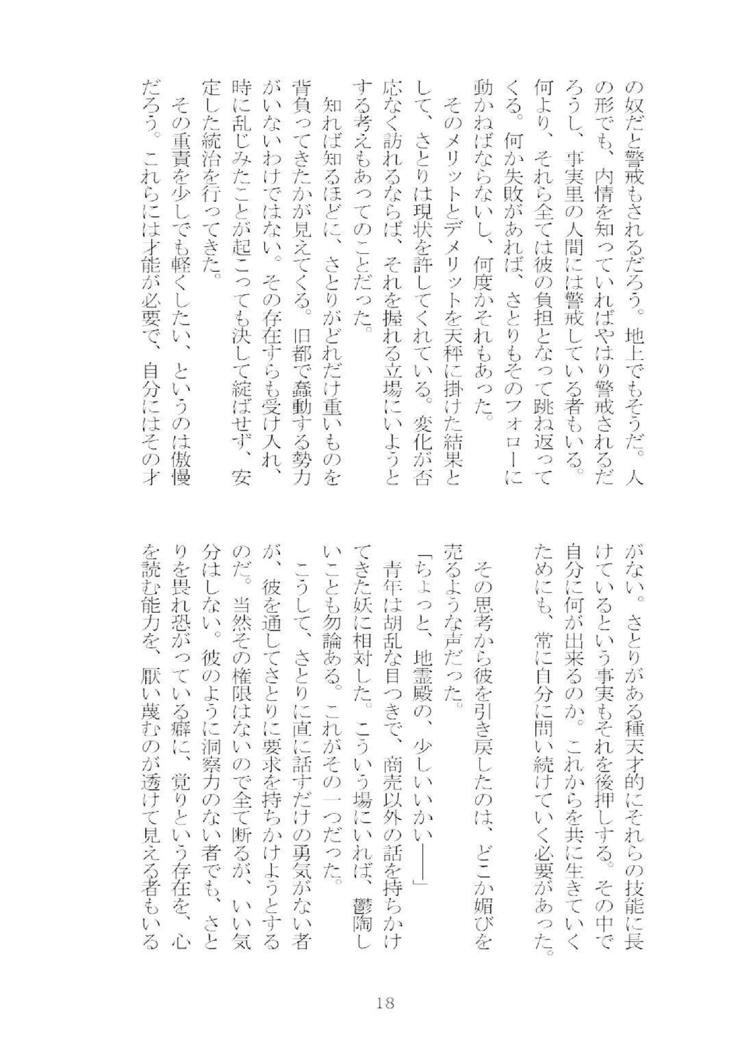 の奴だと警戒もされるだろう。地上でもそうだ。人
の形でも、内情を知っていればやはり警戒されるだ
ろうし、事実里の人間には警戒している者もいる。
何より、それら全ては彼の負担となって跳ね返って
くる。何か失敗があれば、さとりもそのフォローに
動かねばならないし、何度かそれもあった。
　そのメリットとデメリットを天秤に掛けた結果と
して、さとりは現状を許してくれている。変化が否
応なく訪れるならば、それを握れる立場にいようと
する考えもあってのことだった。
　知れば知るほどに、さとりがどれだけ重いものを
背負ってきたかが見えてくる。旧都で蠢動する勢力
がいないわけではない。その存在すらも受け入れ、
時に乱じみたことが起こっても決して綻ばせず、安
定した統治を行ってきた。
　その重責を少しでも軽くしたい、というのは傲慢
だろう。これらには才能が必要で、自分にはその才
がない。さとりがある種天才的にそれらの技能に長
けているという事実もそれを後押しする。その中で
自分に何が出来るのか。これからを共に生きていく
ためにも、常に自分に問い続けていく必要があった。
　その思考から彼を引き戻したのは、どこか媚びを
売るような声だった。
「ちょっと、地霊殿の、少しいいかい――」
　青年は胡乱な目つきで、商売以外の話を持ちかけ
てきた妖に相対した。こういう場にいれば、鬱陶し
いことも勿論ある。これがその一つだった。
　こうして、さとりに直に話すだけの勇気がない者
が、彼を通してさとりに要求を持ちかけようとする
のだ。当然その権限はないので全て断るが、いい気
分はしない。彼のように洞察力のない者でも、さと
りを畏れ恐がっている癖に、覚りという存在を、心
を読む能力を、厭い蔑むのが透けて見える者もいる
18